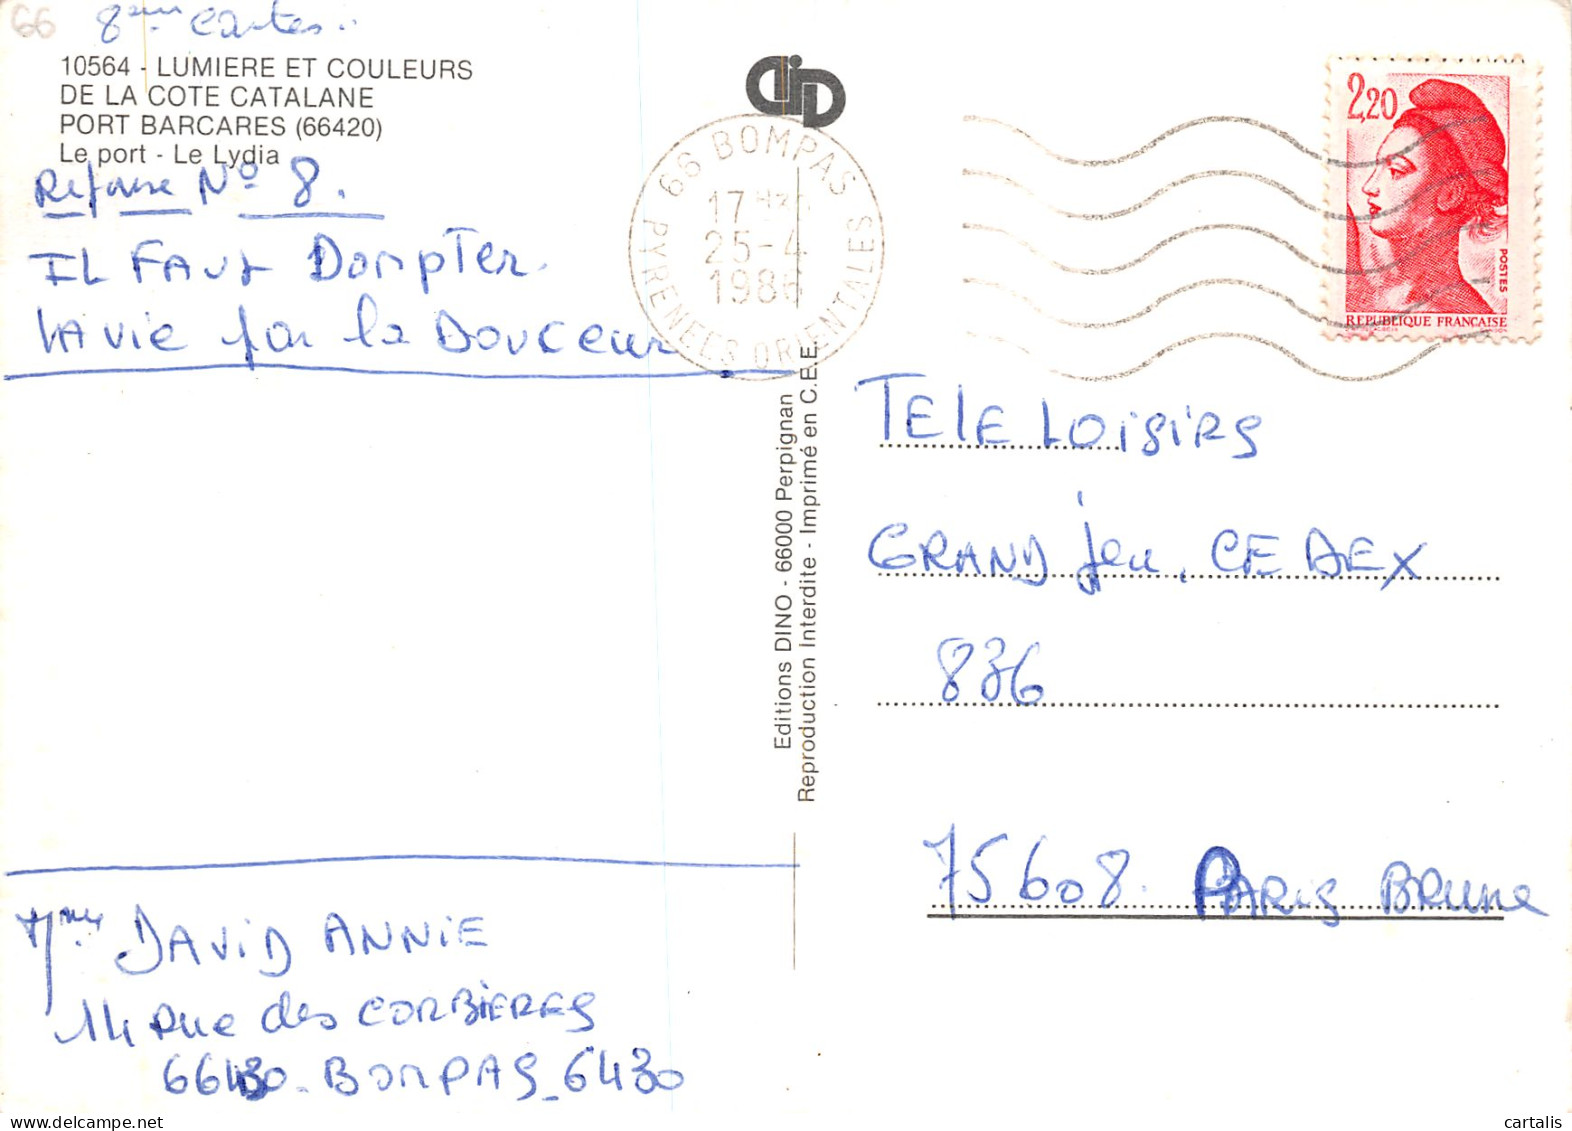 66
8ème Cartes..
10564 - LUMIERE ET COULEURS
DE LA COTE CATALANE
PORT BARCARES (66420)
Le port - Le Lydia
Reponse No 8.
IL FAUT DOMPTER
LA VIE par la DOUCEUR
66 BOMPAS
17 H
25-4
1986
PYRENEES ORIENTALES
2,20
POSTES
REPUBLIQUE FRANCAISE
Editions DINO - 66000 Perpignan
Reproduction Interdite - Imprimé en C.E.E.
TELE LOISIRS
GRAND Jeu. CEDEX
836
75608. PARIS BRUNE
Mme DAVID ANNIE
14 Rue des CORBIERES
66430 - BOMPAS_6430
cartalis